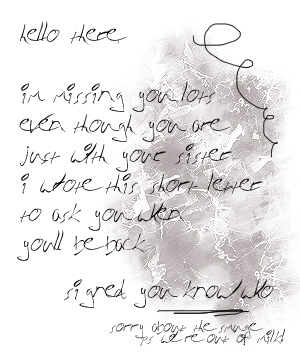 hello there
im missing you lots
even though you are
just with your sister
i wrote this short letter
to ask you when
youll be back
signed you know who
sorry about the smudge
ps we're out of milk!